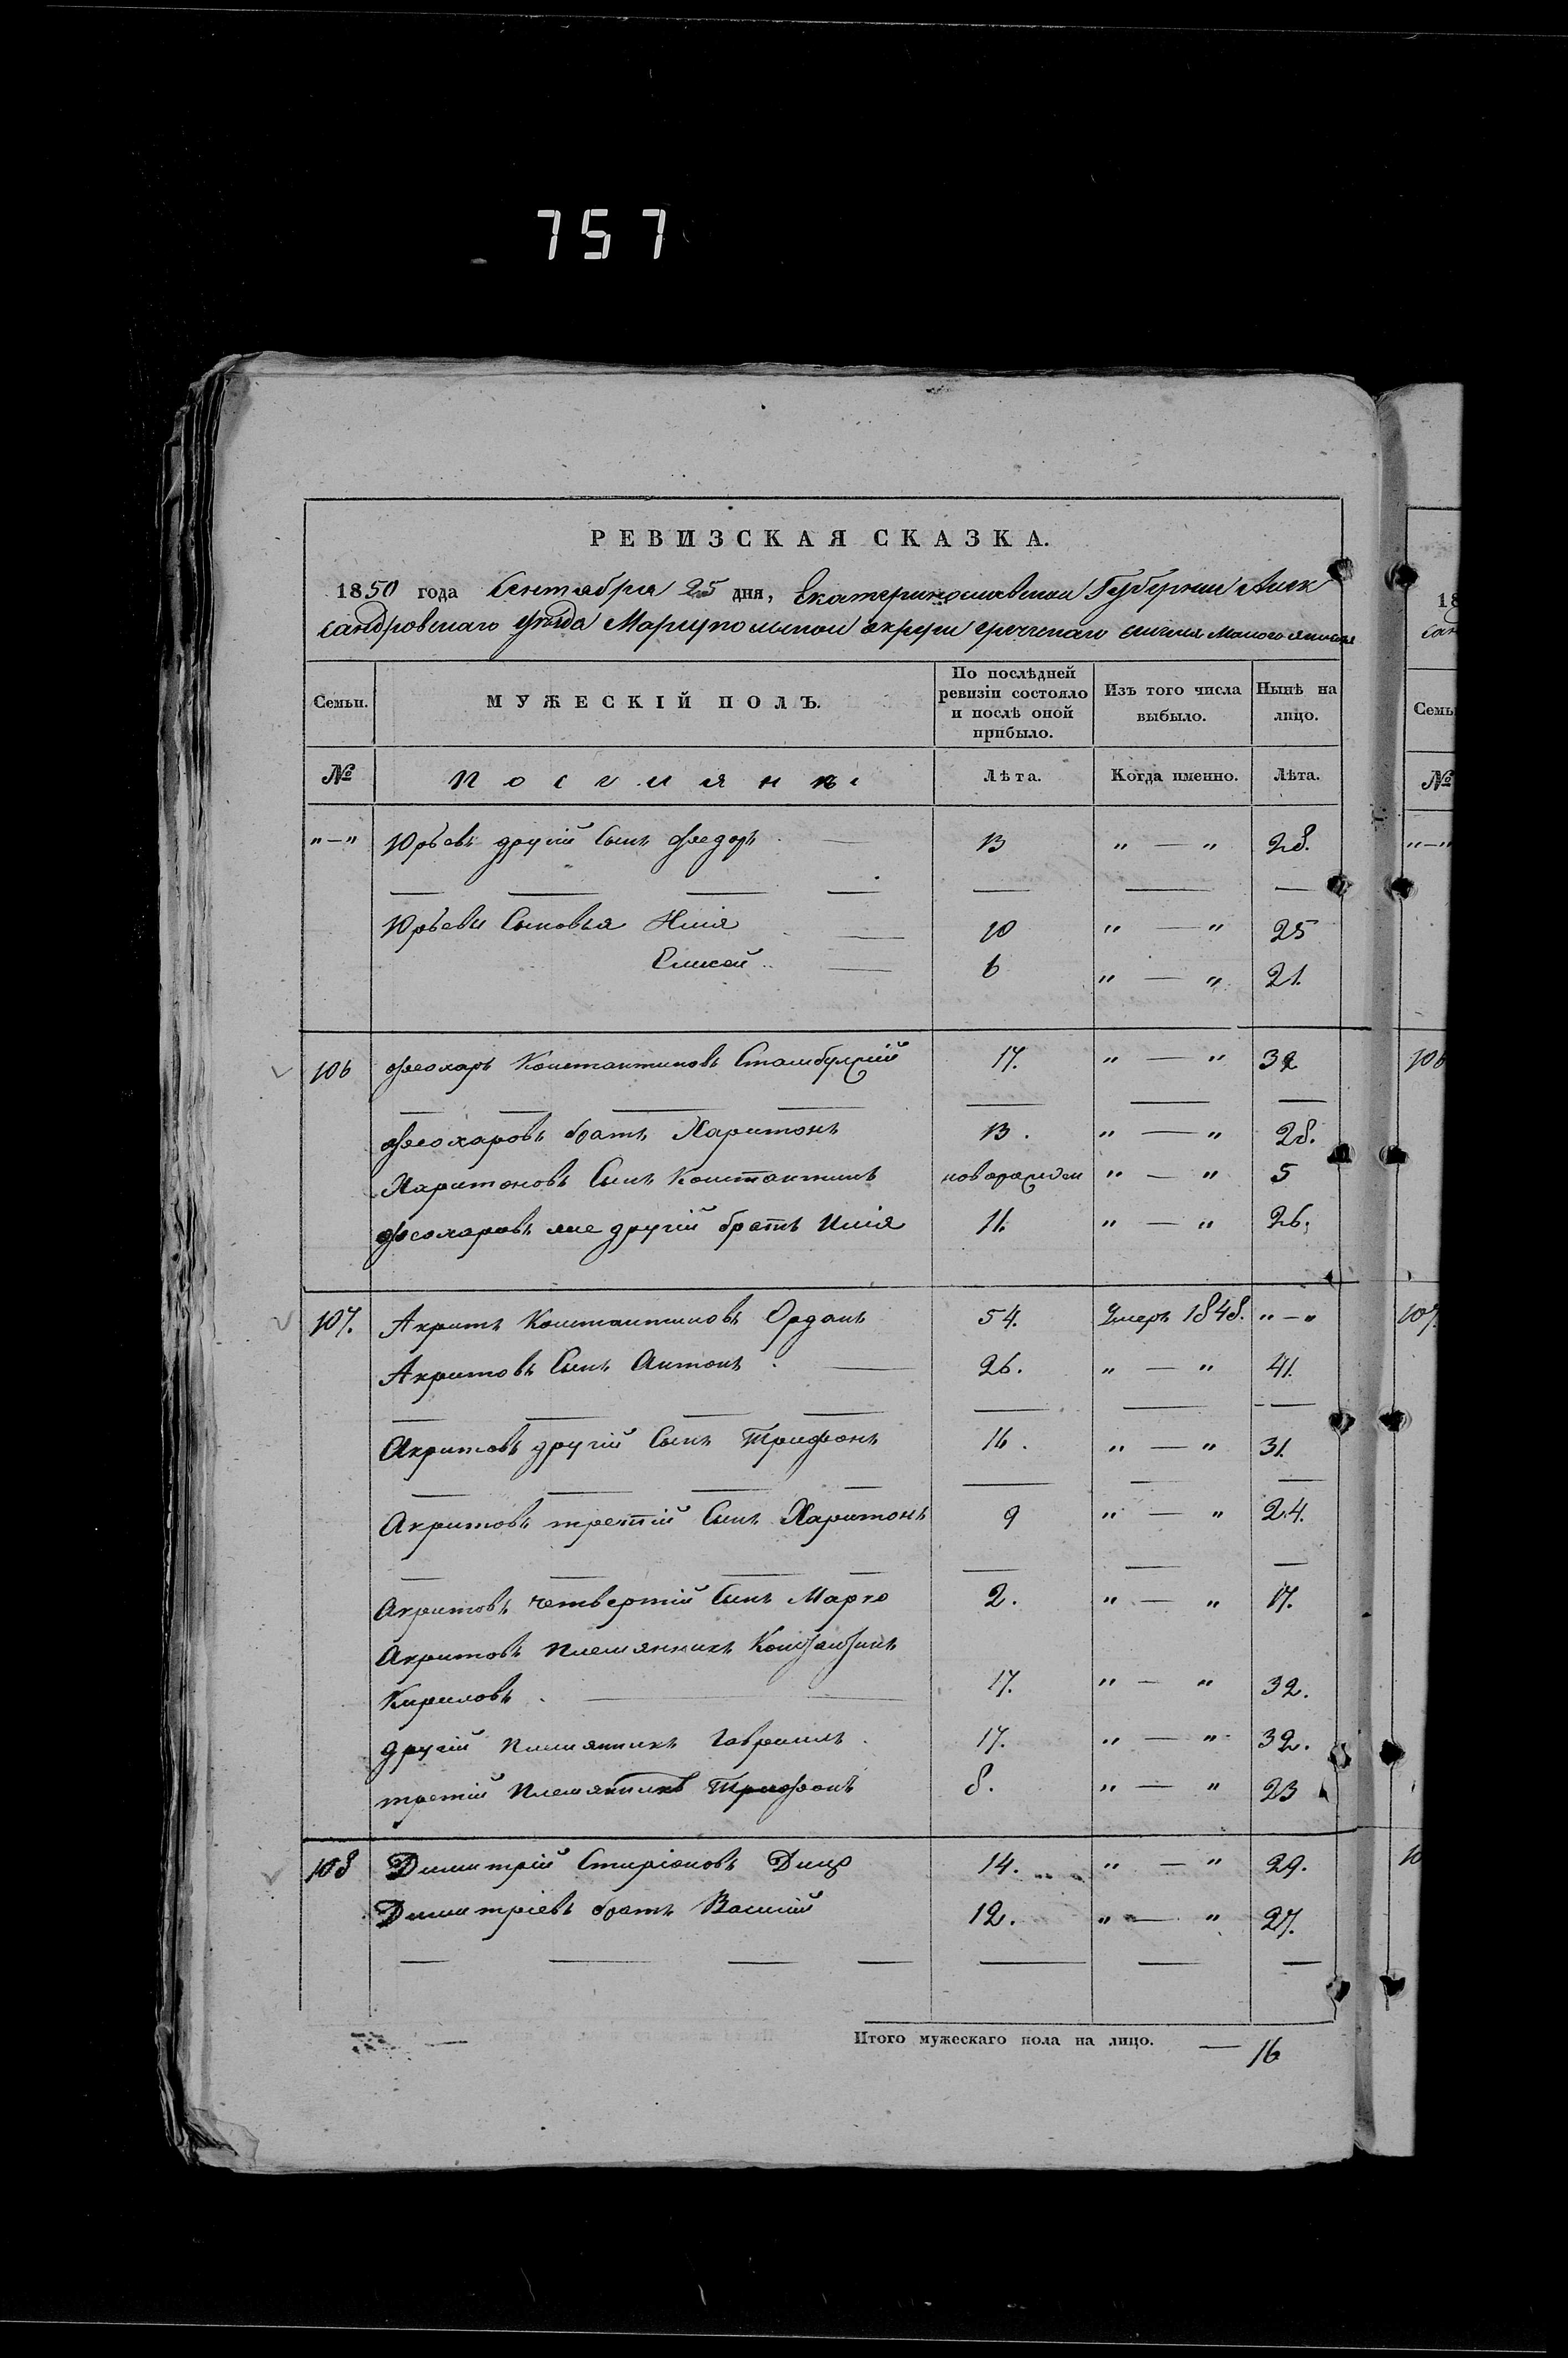 757
РЕВИЗСКАЯ СКАЗКА.
1850 года Сентября 25 дня, Екатеринославской Губернии Алек
сандровскаго уѣзда Маріупольской округи греческаго селенія Малого Янисоля
Семьи. МУЖЕСКІЙ ПОЛЪ. По послѣдней ревизіи состояло и послѣ оной прибыло. Изъ того числа выбыло. Нынѣ на лицо.
№ Поселянъ Лѣта. Когда именно. Лѣта.
"—" Юрьевъ другій Сынъ Ѳедоръ 13 "—" 28.
Юрьевы Сыновья Илія 10 "—" 25
Елисей 6 "—" 21.
106 Ѳеохаръ Константиновъ Стамбулжій 17. "—" 32
Ѳеохаровъ братъ Харитонъ 13. "—" 28.
Харитоновъ Сынъ Константинъ новорожден "—" 5
Ѳеохаровъ же другій братъ Илія 11. "—" 26.
107. Акритъ Константиновъ Орданъ 54. Умеръ 1848. "—"
Акритовъ Сынъ Антонъ 26. "—" 41.
Акритовъ другій Сынъ Трифонъ 16. "—" 31.
Акритовъ третій Сынъ Харитонъ 9 "—" 24.
Акритовъ четвертій Сынъ Марко 2. "—" 17.
Акритовъ племянникъ Константинъ
Кириловъ 17. "—" 32.
другій племянникъ Гавріилъ 17. "—" 32.
третій племянникъ Трифонъ 8. "—" 23
108 Димитрій Спиріоновъ 14. "—" 29.
Димитріевъ братъ Василій 12. "—" 27.
Итого мужескаго пола на лицо. — 16
18
сан
Семь
№
"—"
106
107.
10